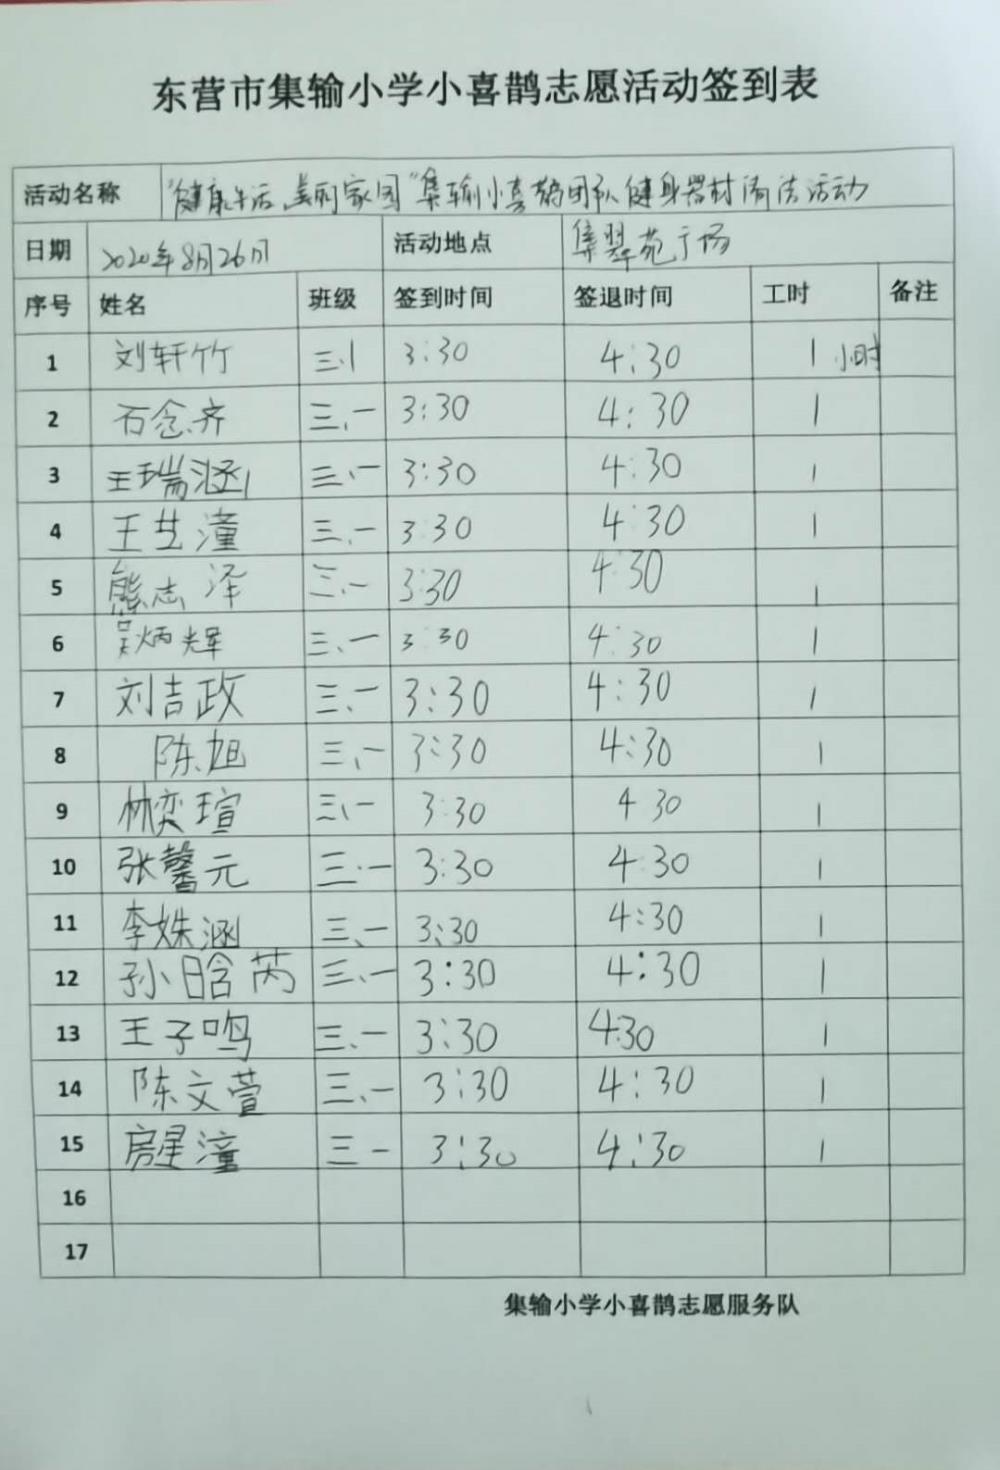 东营市集输小学小喜鹊志愿活动签到表
活动名称 "健康生活,美丽家园"集输小喜鹊团队健身器材清洁活动
日期 2020年8月26日 活动地点 集翠苑广场
序号 姓名 班级 签到时间 签退时间 工时 备注
1 刘轩竹 三.1 3:30 4:30 1小时
2 石念齐 三、一 3:30 4:30 1
3 王瑞涵 三、一 3:30 4:30 1
4 王艺潼 三、一 3:30 4:30 1
5 熊志泽 三、一 3:30 4:30 1
6 吴炳辉 三、一 3:30 4:30 1
7 刘吉政 三、一 3:30 4:30 1
8 陈旭 三、一 3:30 4:30 1
9 林奕瑄 三、一 3:30 4:30 1
10 张馨元 三.一 3:30 4:30 1
11 李姝涵 三、一 3:30 4:30 1
12 孙晗芮 三、一 3:30 4:30 1
13 王子鸣 三、一 3:30 4:30 1
14 陈文萱 三、一 3:30 4:30 1
15 房星潼 三一 3:30 4:30 1
16
17
集输小学小喜鹊志愿服务队